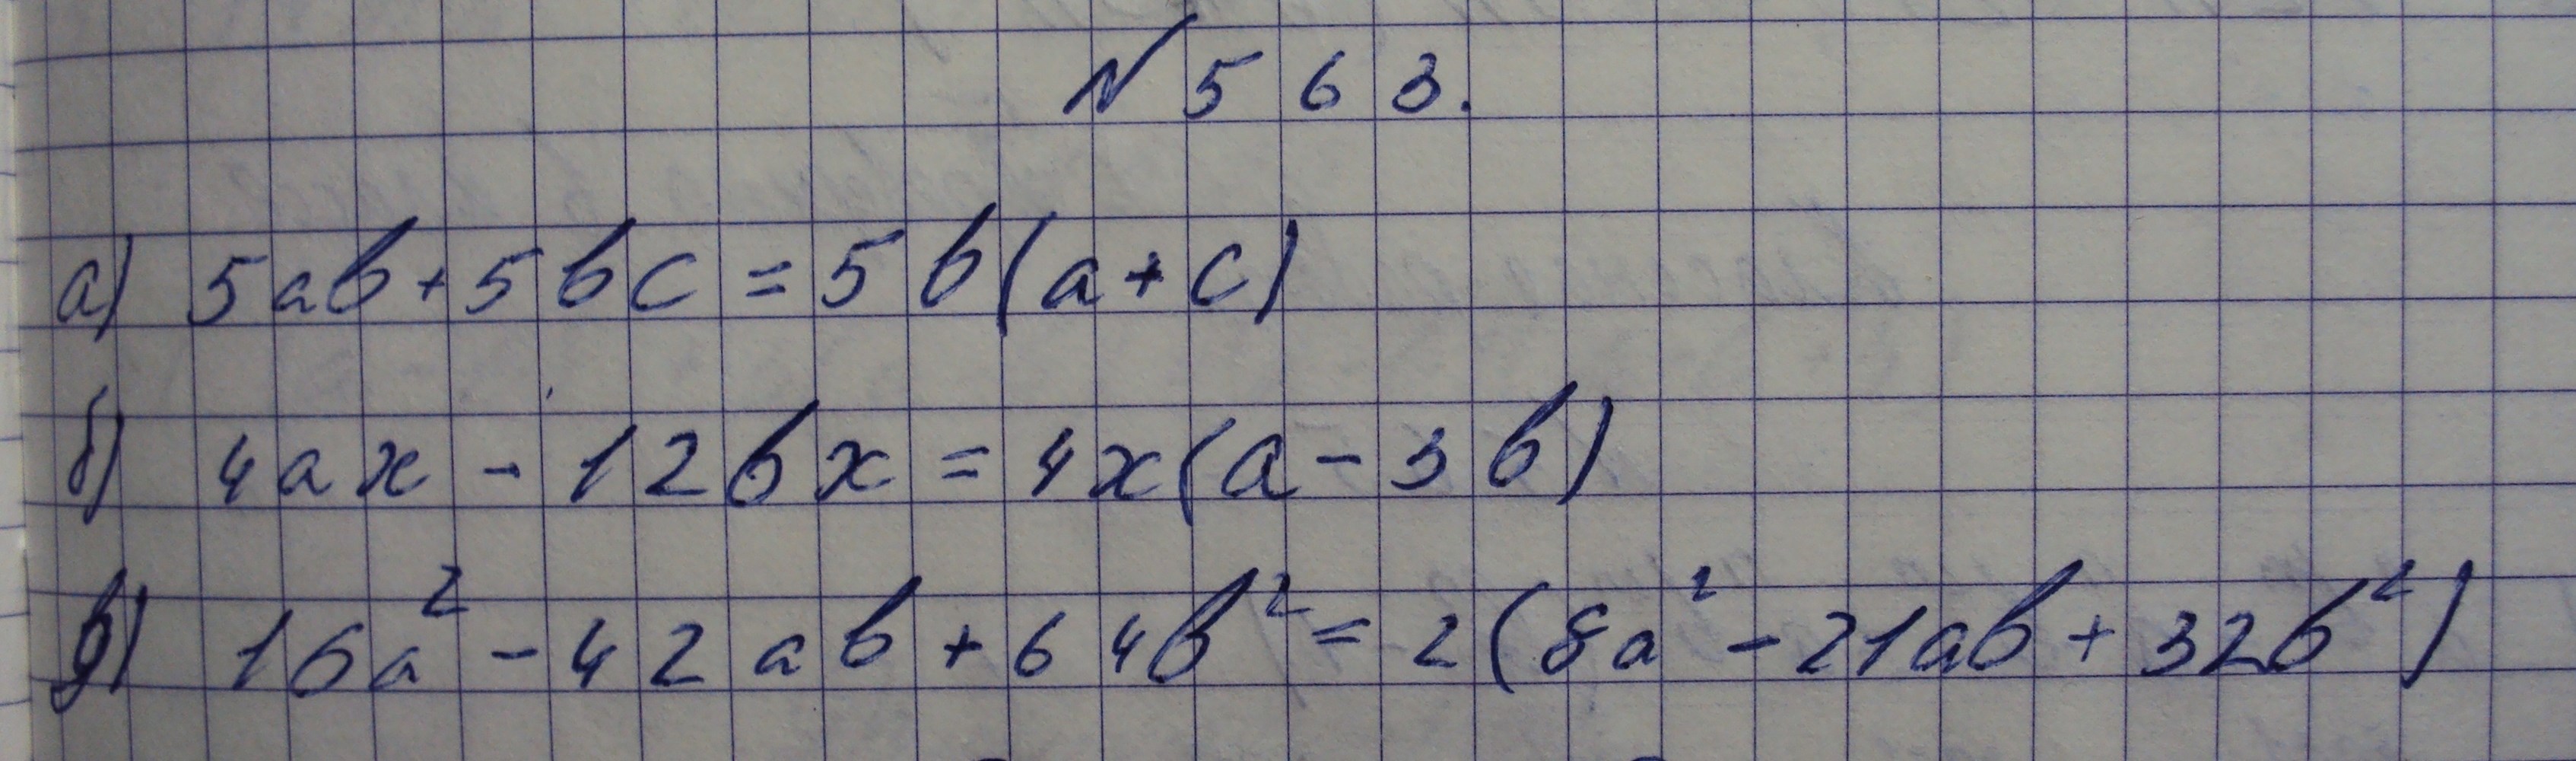 N 563.
а) 5ab+5bc=5b(a+c)
б) 4ax-12bx=4x(a-3b)
в) 16a²-42ab+64b²=2(8a²-21ab+32b²)